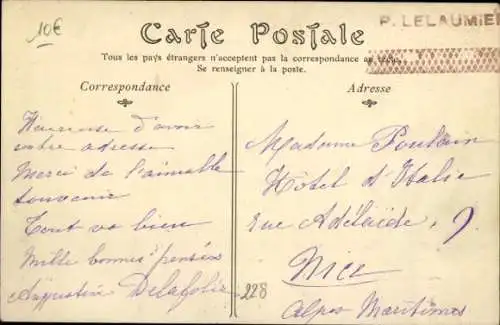 10€
P. LELAUMIE
Carte Postale
Tous les pays étrangers n'acceptent pas la correspondance au
Se renseigner à la poste.
Correspondance
Adresse
Heureuse d'avoir
votre adresse
Merci de l'aimable
souvenir
Tout va bien
Mille bonnes pensées
Augustine Delafolie
228
Madame Poulain
Hotel d'Italie
rue Adélaïde, 9.
Nice
Alpes Maritimes